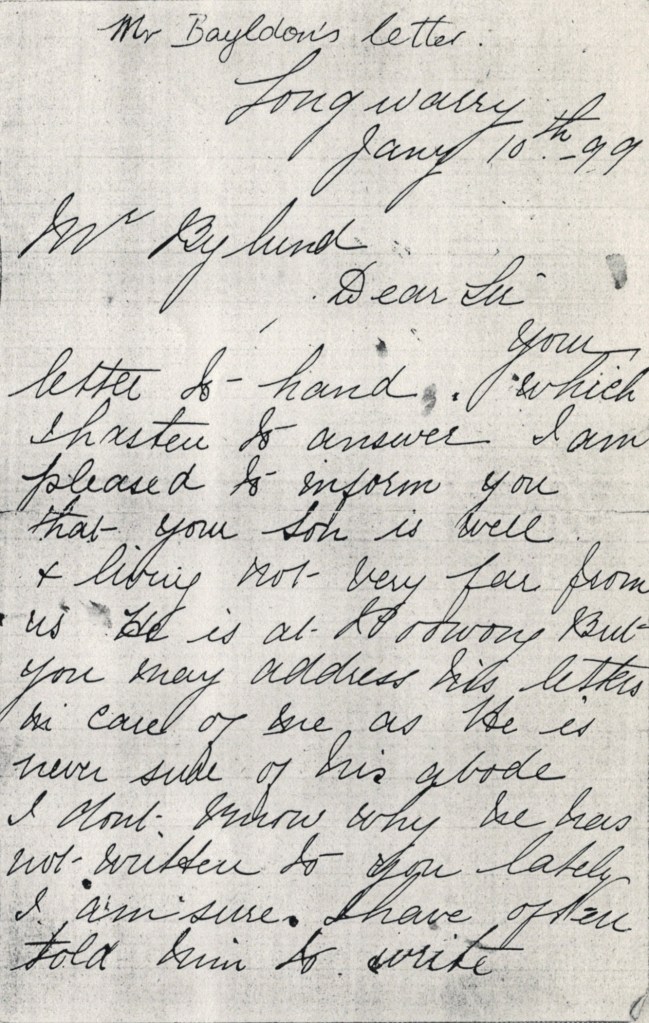 Mr Bayldon's letter.
Longwarry
Jany 10th -99
Mr Bylund
Dear Sir
Your
letter to hand. which
I hasten to answer I am
pleased to inform you
that your son is well
& living not very far from
us He is at Poowong But
you may address his letters
in care of me as He is
never sure of his abode
I dont know why he has
not written to you lately
I am sure. I have often
told him to write